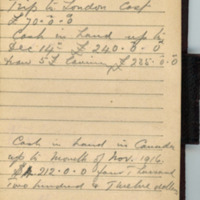 Trip to London Cost
£ 70-0-0
Cash in hand up to
Dec 14th £ 240-0-0
now 5 £ £ 235-0-0
Cash in hand in Canada
up to Month of Nov. 1916,
$4212-0-0 four Thousand
two hundred & Twelve dollars